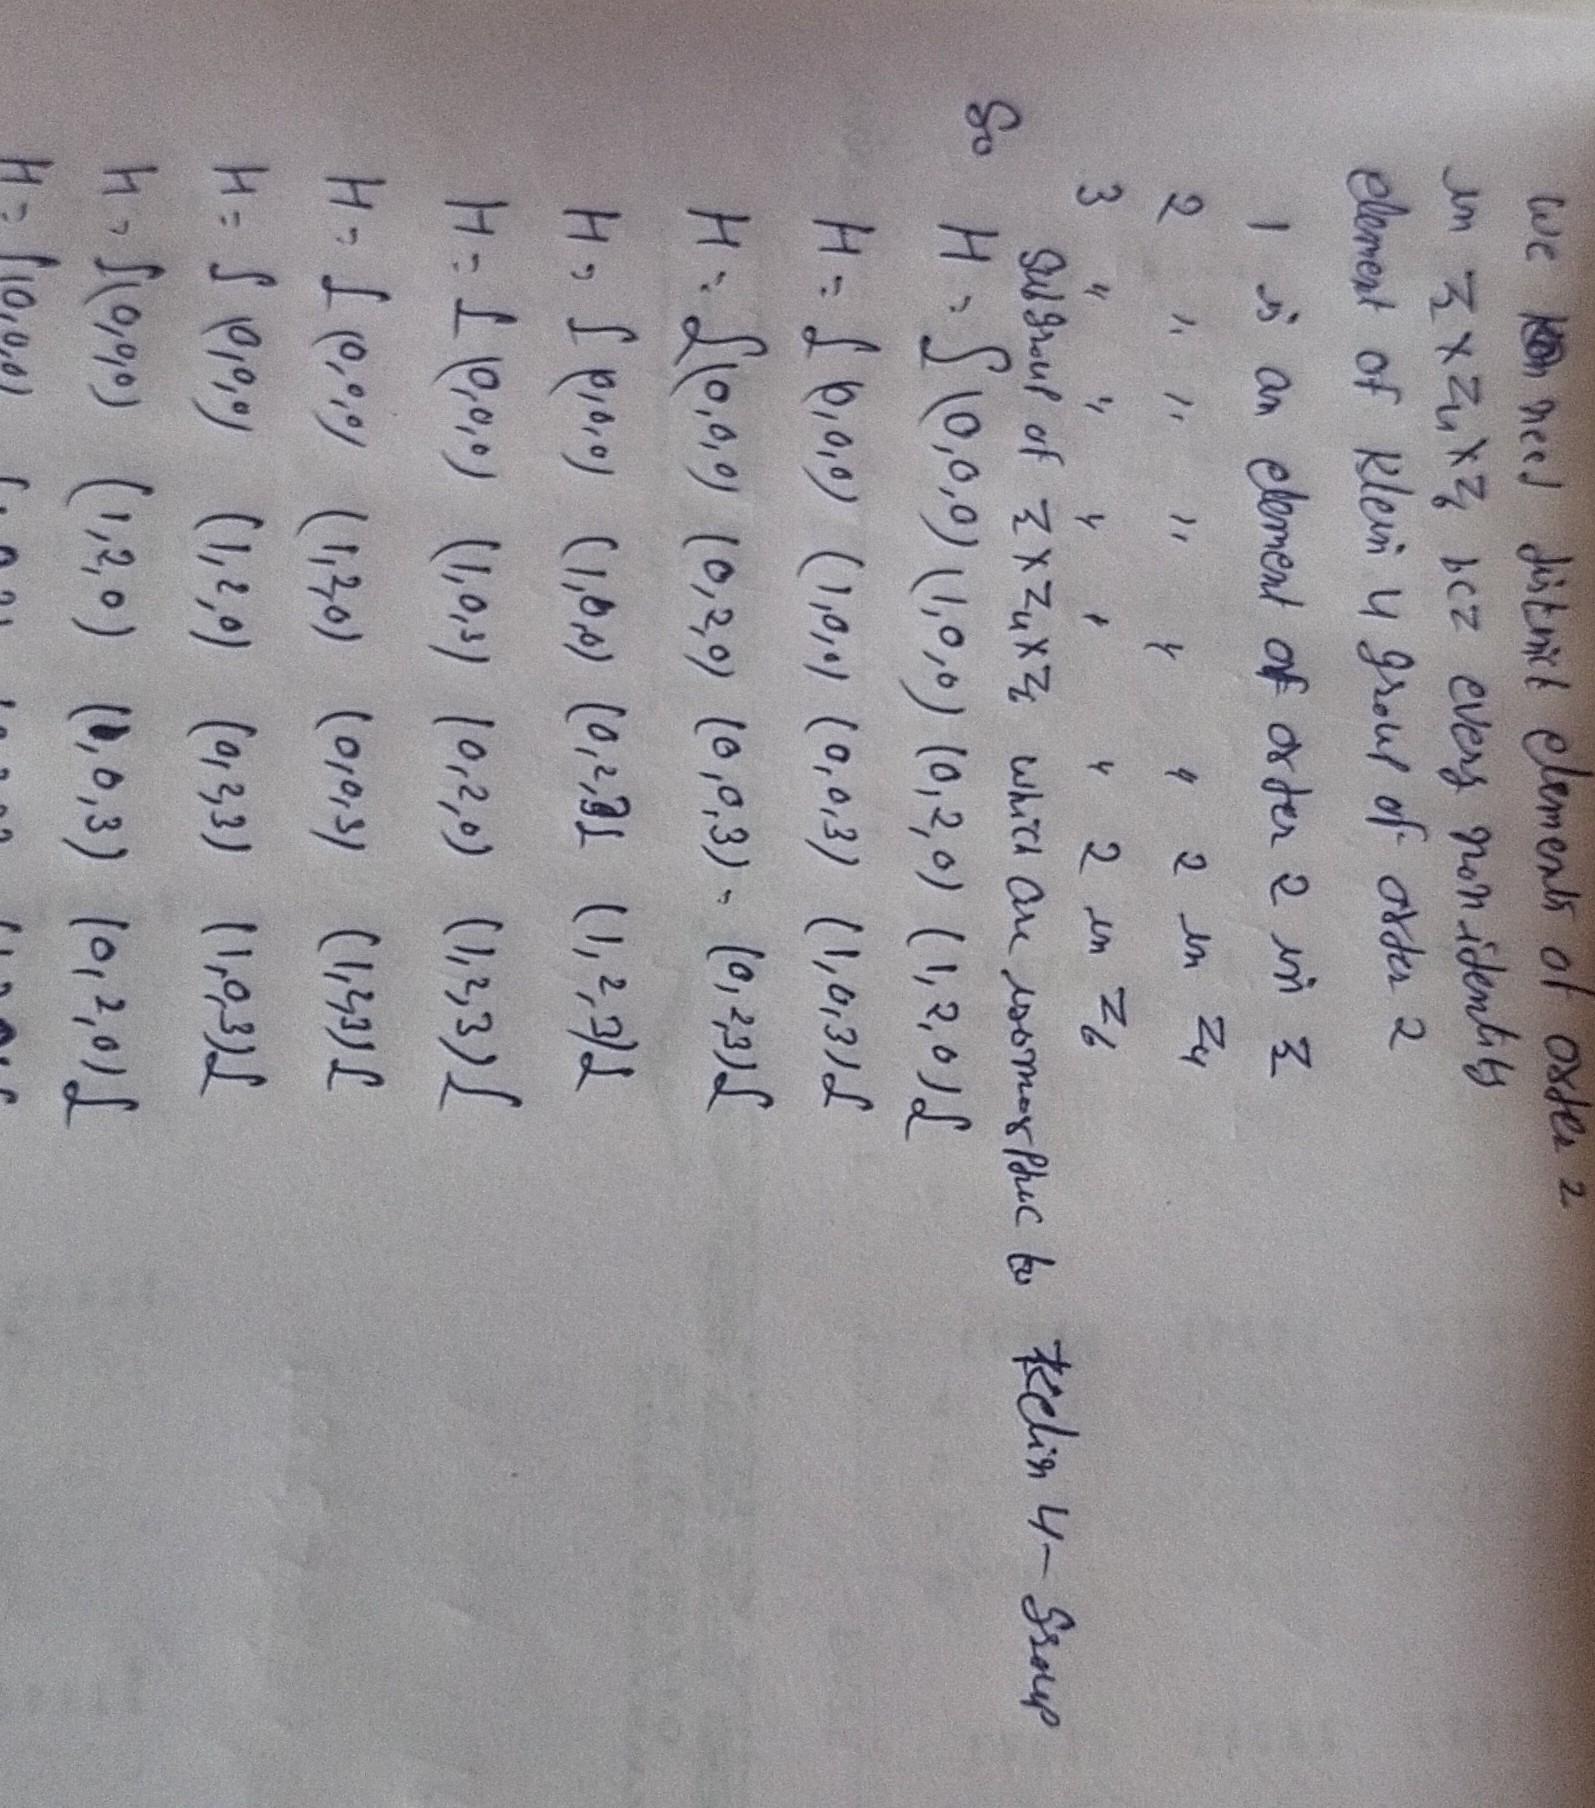 we need distnict elements of order 2
in Z₂ x Z₄ x Z₆ bcz every non identity
element of Klein 4 group of order 2
1 is an element of order 2 in Z₂
2 " " " " " 2 in Z₄
3 " " " " " 2 in Z₆
So subgroup of Z₂ x Z₄ x Z₆ which are isomorphic to Kelin 4-Group
H = {(0,0,0) (1,0,0) (0,2,0) (1,2,0)}
H = {(0,0,0) (1,0,0) (0,0,3) (1,0,3)}
H = {(0,0,0) (0,2,0) (0,0,3), (0,2,3)}
H = {(0,0,0) (1,0,0) (0,2,3) (1,2,3)}
H = {(0,0,0) (1,0,3) (0,2,0) (1,2,3)}
H = {(0,0,0) (1,2,0) (0,0,3) (1,2,3)}
H = {(0,0,0) (1,2,0) (0,2,3) (1,0,3)}
H = {(0,0,0) (1,2,0) (1,0,3) (0,2,0)}
H = {(0,0,0)